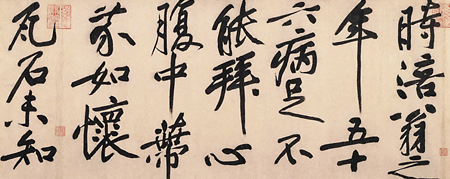 時涪翁之
年五十
六病足不
能拜心
腹中蔕
芥如懷
瓦石未知